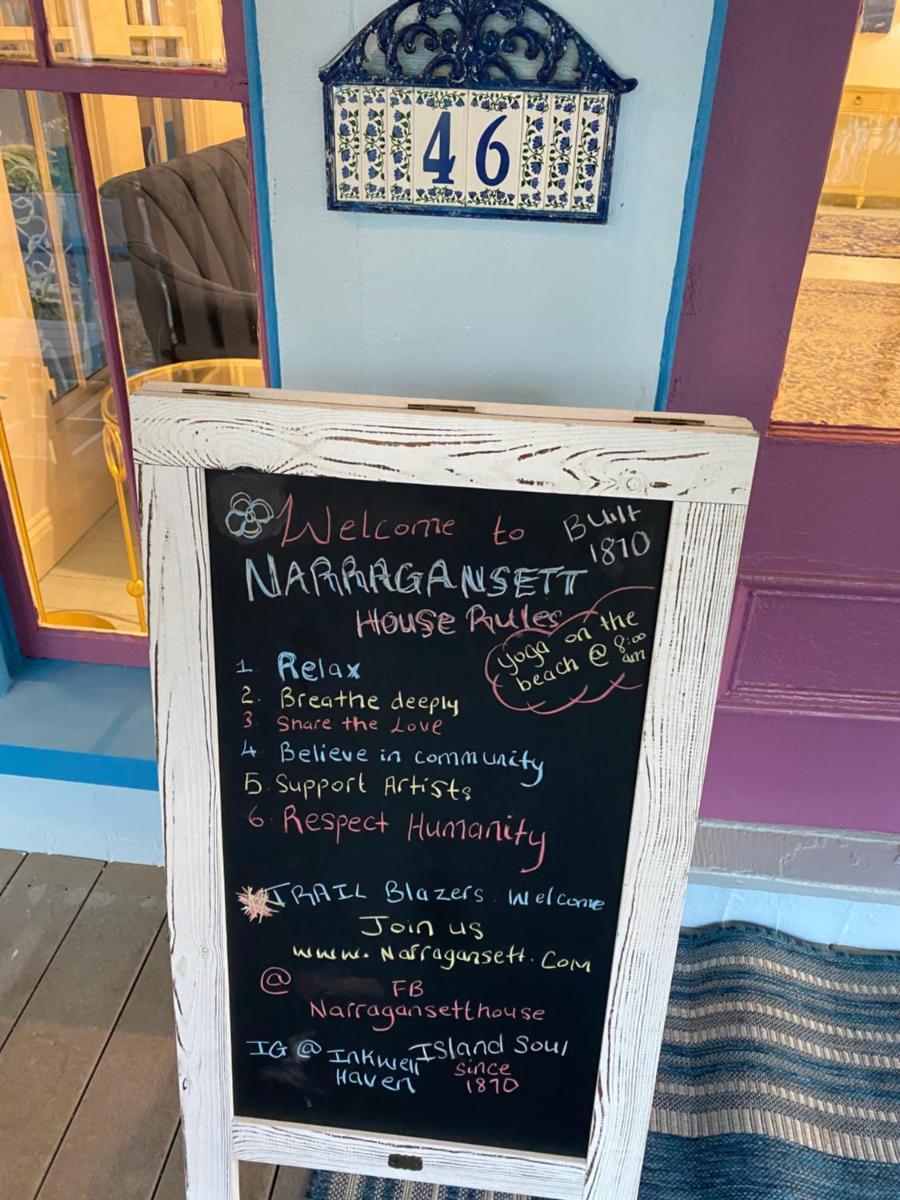 46
Welcome to
Built
1870
NARRAGANSETT
House Rules
yoga on the
beach @ 8:00
am
1. Relax
2. Breathe deeply
3. Share the Love
4. Believe in community
5. Support Artists
6. Respect Humanity
TRAIL Blazers. Welcome
Join us
www. Narragansett. Com
@ FB
Narragansetthouse
IG @ Inkwell
Haven
Island Soul
since
1870